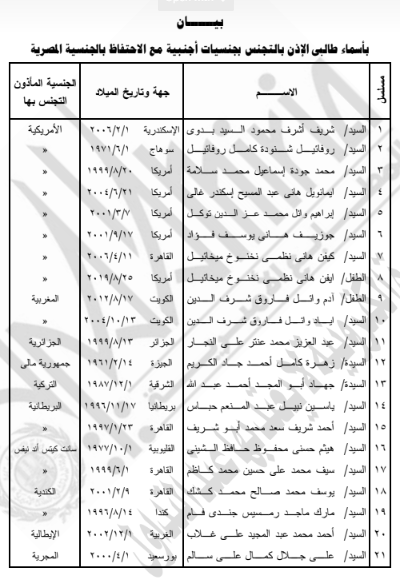 بيـــــان
بأسماء طالبى الإذن بالتجنس بجنسيات أجنبية مع الاحتفاظ بالجنسية المصرية
مسلسل الاســـم جهة وتاريخ الميلاد الجنسية المأذون التجنس بها
١ السيد/ شريف أشرف محمود السيد بدوى الإسكندرية ٢٠٠٦/٢/١ الأمريكية
٢ السيد/ روفائيل شنودة كامل روفائيل سوهاج ١٩٧١/٦/١ »
٣ السيد/ محمد جودة إسماعيل محمد سلامة أمريكا ١٩٩٩/٨/٢٠ »
٤ السيد/ ايمانويل هانى عبد المسيح إسكندر غالى أمريكا ٢٠٠٤/٦/٢١ »
٥ السيد/ إبراهيم وائل محمد عز الدين توكل أمريكا ٢٠٠١/٣/٧ »
٦ السيد/ جوزيف هانى يوسف فؤاد أمريكا ٢٠٠١/٩/١٧ »
٧ السيد/ كيفن هانى نظمى نخنوخ ميخائيل القاهرة ٢٠٠٦/٤/١١ »
٨ الطفل/ ايفن هانى نظمى نخنوخ ميخائيل أمريكا ٢٠١٩/٨/٢٥ »
٩ الطفل/ آدم وائل فاروق شرف الدين الكويت ٢٠١٢/٨/١٧ المغربية
١٠ السيد/ اياد وائل فاروق شرف الدين الكويت ٢٠٠٤/١٠/١٣ »
١١ السيد/ عبد العزيز محمد عنتر على النجار الجزائر ١٩٩٩/٨/١٣ الجزائرية
١٢ السيدة/ زهرة كامل أحمد جاد الكريم الجيزة ١٩٦١/٢/١٤ جمهورية مالى
١٣ السيدة/ جهاد أبو المجد أحمد عبد الله الشرقية ١٩٨٧/١٢/١ التركية
١٤ السيد/ ياسين نبيل عبد المنعم حباس بريطانيا ١٩٩٦/١١/١٧ البريطانية
١٥ السيد/ أحمد شريف سعد محمد أبو شريف القاهرة ١٩٩٧/١/٢٣ »
١٦ السيد/ هيثم حسنى محفوظ حافظ الشينى القليوبية ١٩٧٧/١٠/١ سانت كيتس أند نيفس
١٧ السيد/ سيف محمد على حسين محمد كاظم القاهرة ١٩٩٩/٦/١ »
١٨ السيد/ يوسف محمد صالح محمد كشك القاهرة ٢٠٠١/٢/٩ الكندية
١٩ السيد/ مارك ماجد رمسيس جندى فام كندا ١٩٩٦/٨/١٤ »
٢٠ السيد/ أحمد محمد عبد المجيد على غلاب الغربية ٢٠٠٢/١٢/١ الإيطالية
٢١ السيد/ على جلال كمال على سالم بورسعيد ٢٠٠٠/٤/١ المجرية